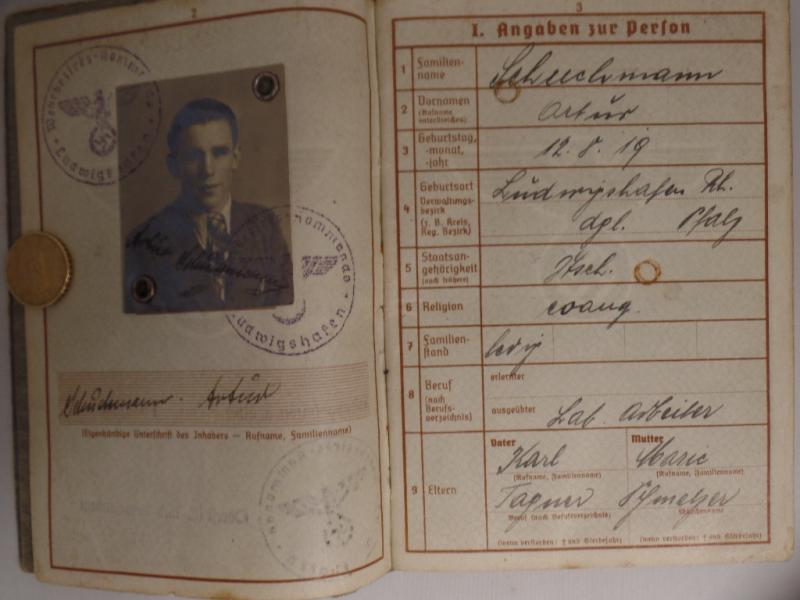 2
Wehrbezirks-Kommando
Ludwigshafen
Artur Schuchmann
Kommando
Ludwigshafen
Schuchmann. Artur
(Eigenhändige Unterschrift des Inhabers — Rufname, Familienname)
3
I. Angaben zur Person
1 Familien-
name
Schuchmann
2 Vornamen
(Rufname
unterstreichen)
Artur
3 Geburtstag,
-monat,
-jahr
12. 8. 19
4 Geburtsort
Verwaltungs-
bezirk
(z. B. Kreis,
Reg. Bezirk)
Ludwigshafen Rh.
dgl. Pfalz
5 Staatsan-
gehörigkeit
(auch frühere)
Dtsch.
6 Religion
evang.
7 Familien-
stand
ledig
8 Beruf
(nach
Berufs-
verzeichnis)
erlernter
ausgeübter
Lab. Arbeiter
9 Eltern
Vater
Karl
(Rufname, Familienname)
Tagner
Beruf (nach Berufsverzeichnis)
(wenn verstorben: † und Sterbejahr)
Mutter
Marie
(Rufname, Familienname)
Schmelzer
Mädchenname
(wenn verstorben: † und Sterbejahr)